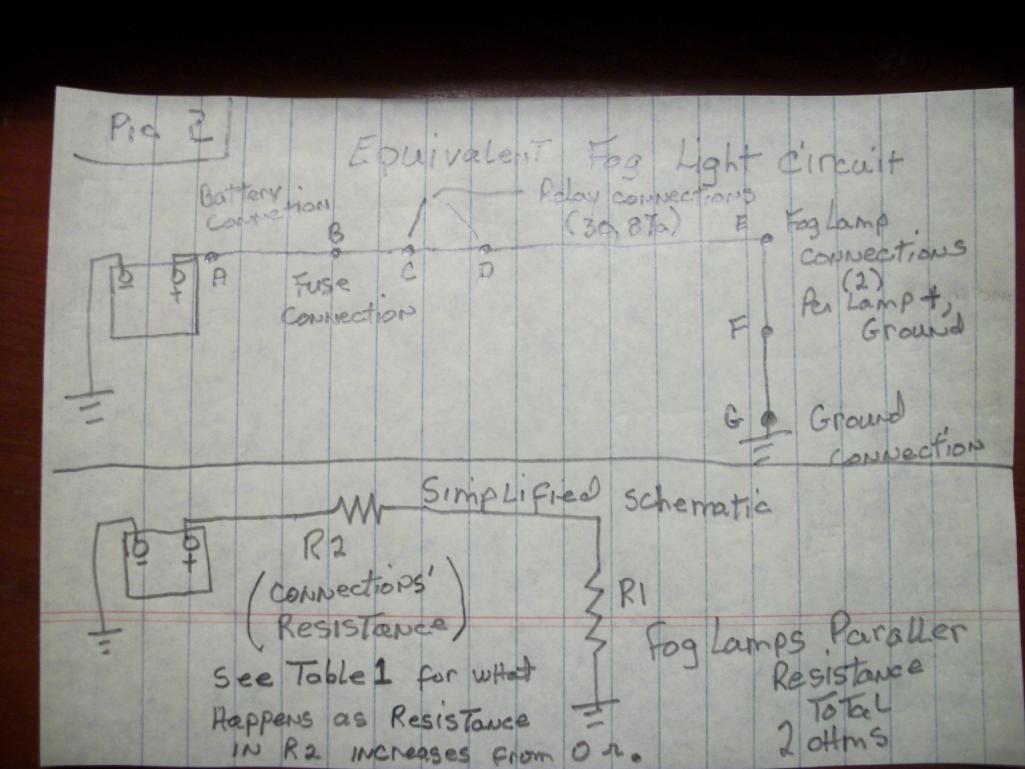 Pic 2
Equivalent Fog Light Circuit
Battery
Connection
Relay connections
(30, 87a)
A
B
C
D
E
Fog Lamp
connections
(2)
Per Lamp +,
Ground
Fuse
Connection
F
G
Ground
connection
- +
Simplified schematic
- +
R2
(Connections'
Resistance)
R1
Fog Lamps Paraller
Resistance
Total
2 ohms
See Table 1 for what
Happens as Resistance
in R2 increases from 0 Ω.